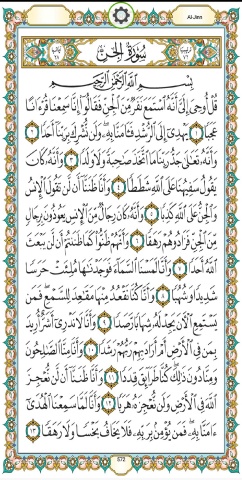 Al-Jinn
سُورَةُ الجِنِّ
بِسْمِ ٱللَّهِ ٱلرَّحْمَٰنِ ٱلرَّحِيمِ
قُلْ أُوحِىَ إِلَىَّ أَنَّهُ ٱسْتَمَعَ نَفَرٌ مِّنَ ٱلْجِنِّ فَقَالُوٓا۟ إِنَّا سَمِعْنَا قُرْءَانًا
عَجَبًا ١ يَهْدِىٓ إِلَى ٱلرُّشْدِ فَـَٔامَنَّا بِهِۦ وَلَن نُّشْرِكَ بِرَبِّنَآ أَحَدًا ٢
وَأَنَّهُۥ تَعَٰلَىٰ جَدُّ رَبِّنَا مَا ٱتَّخَذَ صَٰحِبَةً وَلَا وَلَدًا ٣ وَأَنَّهُۥ كَانَ
يَقُولُ سَفِيهُنَا عَلَى ٱللَّهِ شَطَطًا ٤ وَأَنَّا ظَنَنَّآ أَن لَّن تَقُولَ ٱلْإِنسُ
وَٱلْجِنُّ عَلَى ٱللَّهِ كَذِبًا ٥ وَأَنَّهُۥ كَانَ رِجَالٌ مِّنَ ٱلْإِنسِ يَعُوذُونَ بِرِجَالٍ
مِّنَ ٱلْجِنِّ فَزَادُوهُمْ رَهَقًا ٦ وَأَنَّهُمْ ظَنُّوا۟ كَمَا ظَنَنتُمْ أَن لَّن يَبْعَثَ
ٱللَّهُ أَحَدًا ٧ وَأَنَّا لَمَسْنَا ٱلسَّمَآءَ فَوَجَدْنَٰهَا مُلِئَتْ حَرَسًا
شَدِيدًا وَشُهُبًا ٨ وَأَنَّا كُنَّا نَقْعُدُ مِنْهَا مَقَٰعِدَ لِلسَّمْعِ فَمَن
يَسْتَمِعِ ٱلْـَٔانَ يَجِدْ لَهُۥ شِهَابًا رَّصَدًا ٩ وَأَنَّا لَا نَدْرِىٓ أَشَرٌّ أُرِيدَ
بِمَن فِى ٱلْأَرْضِ أَمْ أَرَادَ بِهِمْ رَبُّهُمْ رَشَدًا ١٠ وَأَنَّا مِنَّا ٱلصَّٰلِحُونَ
وَمِنَّا دُونَ ذَٰلِكَ كُنَّا طَرَآئِقَ قِدَدًا ١١ وَأَنَّا ظَنَنَّآ أَن لَّن نُّعْجِزَ
ٱللَّهَ فِى ٱلْأَرْضِ وَلَن نُّعْجِزَهُۥ هَرَبًا ١٢ وَأَنَّا لَمَّا سَمِعْنَا ٱلْهُدَىٰٓ
ءَامَنَّا بِهِۦ فَمَن يُؤْمِنۢ بِرَبِّهِۦ فَلَا يَخَافُ بَخْسًا وَلَا رَهَقًا ١٣
572